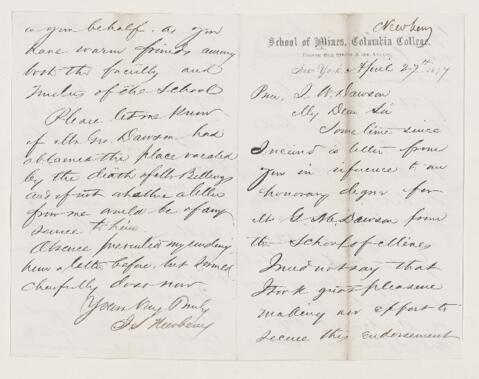 Newberry
School of Mines, Columbia College,
New York April 27th 1877
Prin. J. W. Dawson
My Dear Sir
Some time since
I received a letter from
you in reference to an
honorary degree for
Mr G. M. Dawson from
the School of Mines
I need not say that
I took great pleasure
making an effort to
secure this endorsement
in your behalf. as you
have warm friends among
both the faculty and
Trustees of the School
Please let me know
if Mr Geo. Dawson has
obtained the place vacated
by the death of Mr Billings
and if not whether a letter
from me would be of any
service to him
Absence prevented my sending
him a letter before, but I would
cheerfully do so now.
Yours Very Truly
J. S. Newberry